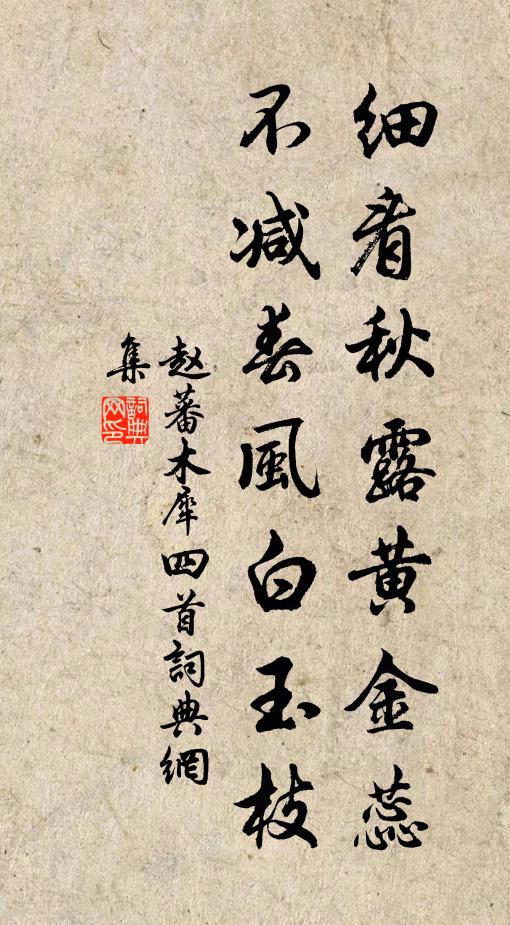 细看秋露黄金蕊
不减春风白玉枝
赵蕃木犀四首詞典網
集
詞典
网印